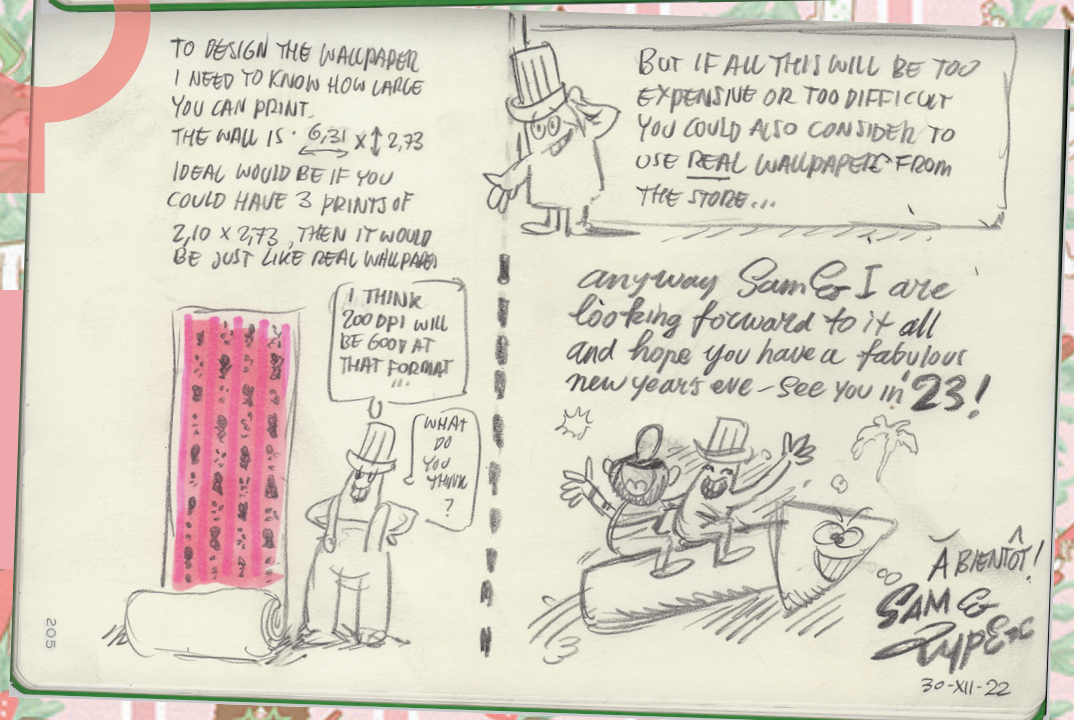 TO DESIGN THE WALLPAPER
I NEED TO KNOW HOW LARGE
YOU CAN PRINT.
THE WALL IS 6,31 X 2,73
IDEAL WOULD BE IF YOU
COULD HAVE 3 PRINTS OF
2,10 X 2,73, THEN IT WOULD
BE JUST LIKE REAL WALLPAPER
I THINK
200 DPI WILL
BE GOOD AT
THAT FORMAT
...
WHAT
DO
YOU
THINK
?
205
BUT IF ALL THIS WILL BE TOO
EXPENSIVE OR TOO DIFFICULT
YOU COULD ALSO CONSIDER TO
USE REAL WALLPAPER FROM
THE STORE...
anyway Sam & I are
looking forward to it all
and hope you have a fabulous
new years eve - see you in '23!
À BIENTÔT!
SAM &
TYPEX
30-XII-22
3